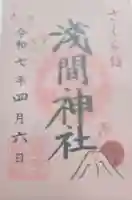 さくら詣
浅間神社
令和七年四月六日